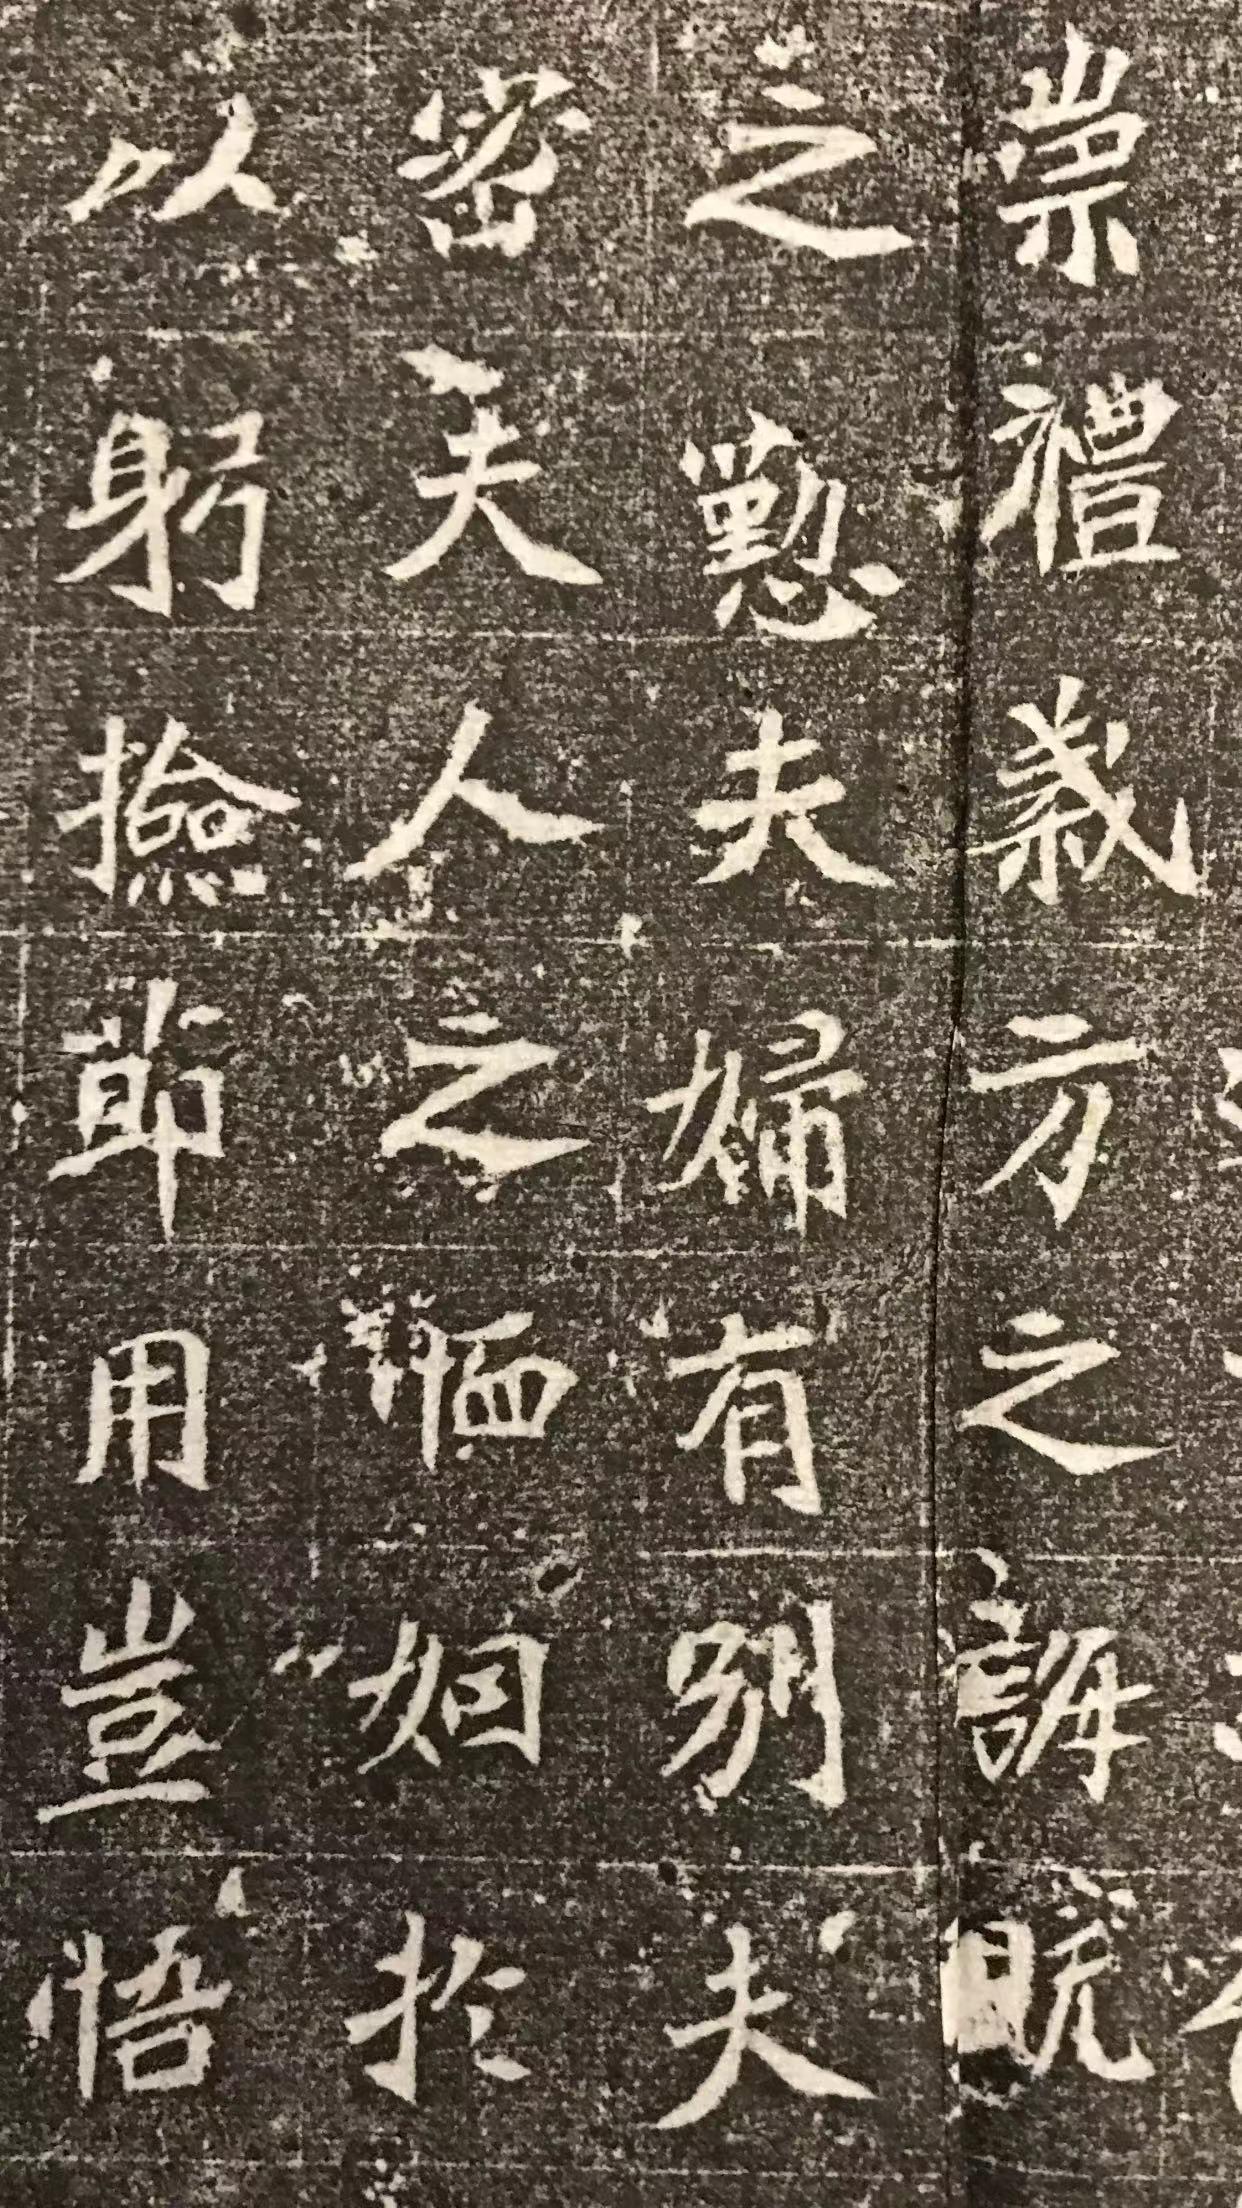 崇禮義方之誨
之懃夫婦有別夫
密夫人之恤姻於
以躬撿節用豈悟